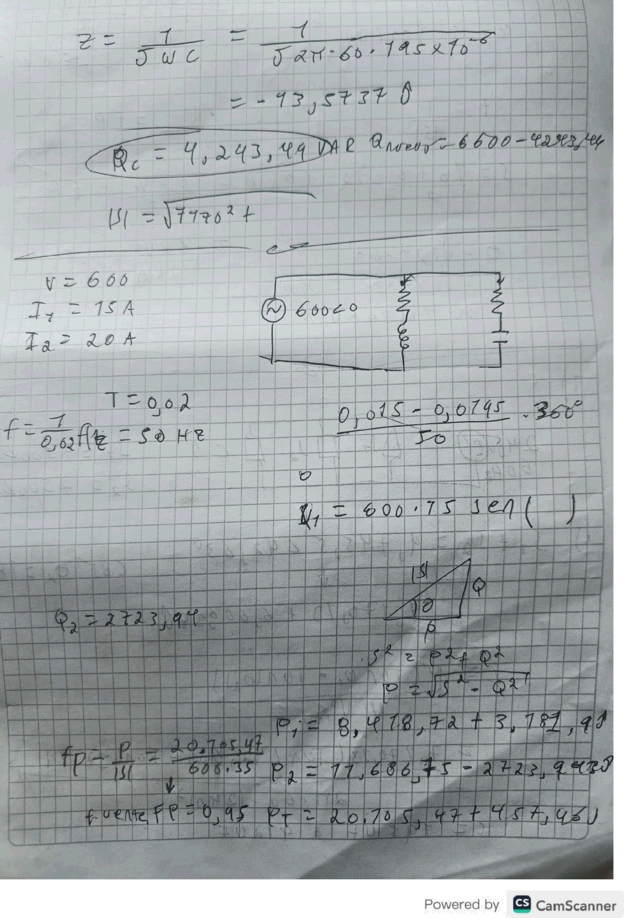 z = 1/(J W C) = 1/(J 2π·60·195×10^-6)
= -13,5737 J
Qc = 4,243,49 VAR Qnuevo = 6600-4243,44
|S| = √7470² +
V = 600
I1 = 15 A
I2 = 20 A
600<0
T = 0,02
f = 1/0,02 Hz = 50 Hz
(0,015 - 0,0145)/50 · 360°
= 600·15 sen( )
|S| Q
θ
P
Q2 = 2723,94
S² = P² + Q²
P = √S² - Q²
P1 = 8,418,72 + 3,781,9J
fp = P/|S| = 20,105,47/600·35
P2 = 11,686,75 - 2723,943J
fuente FP = 0,95 PT = 20,105,47 + 457,46J
Powered by CS CamScanner